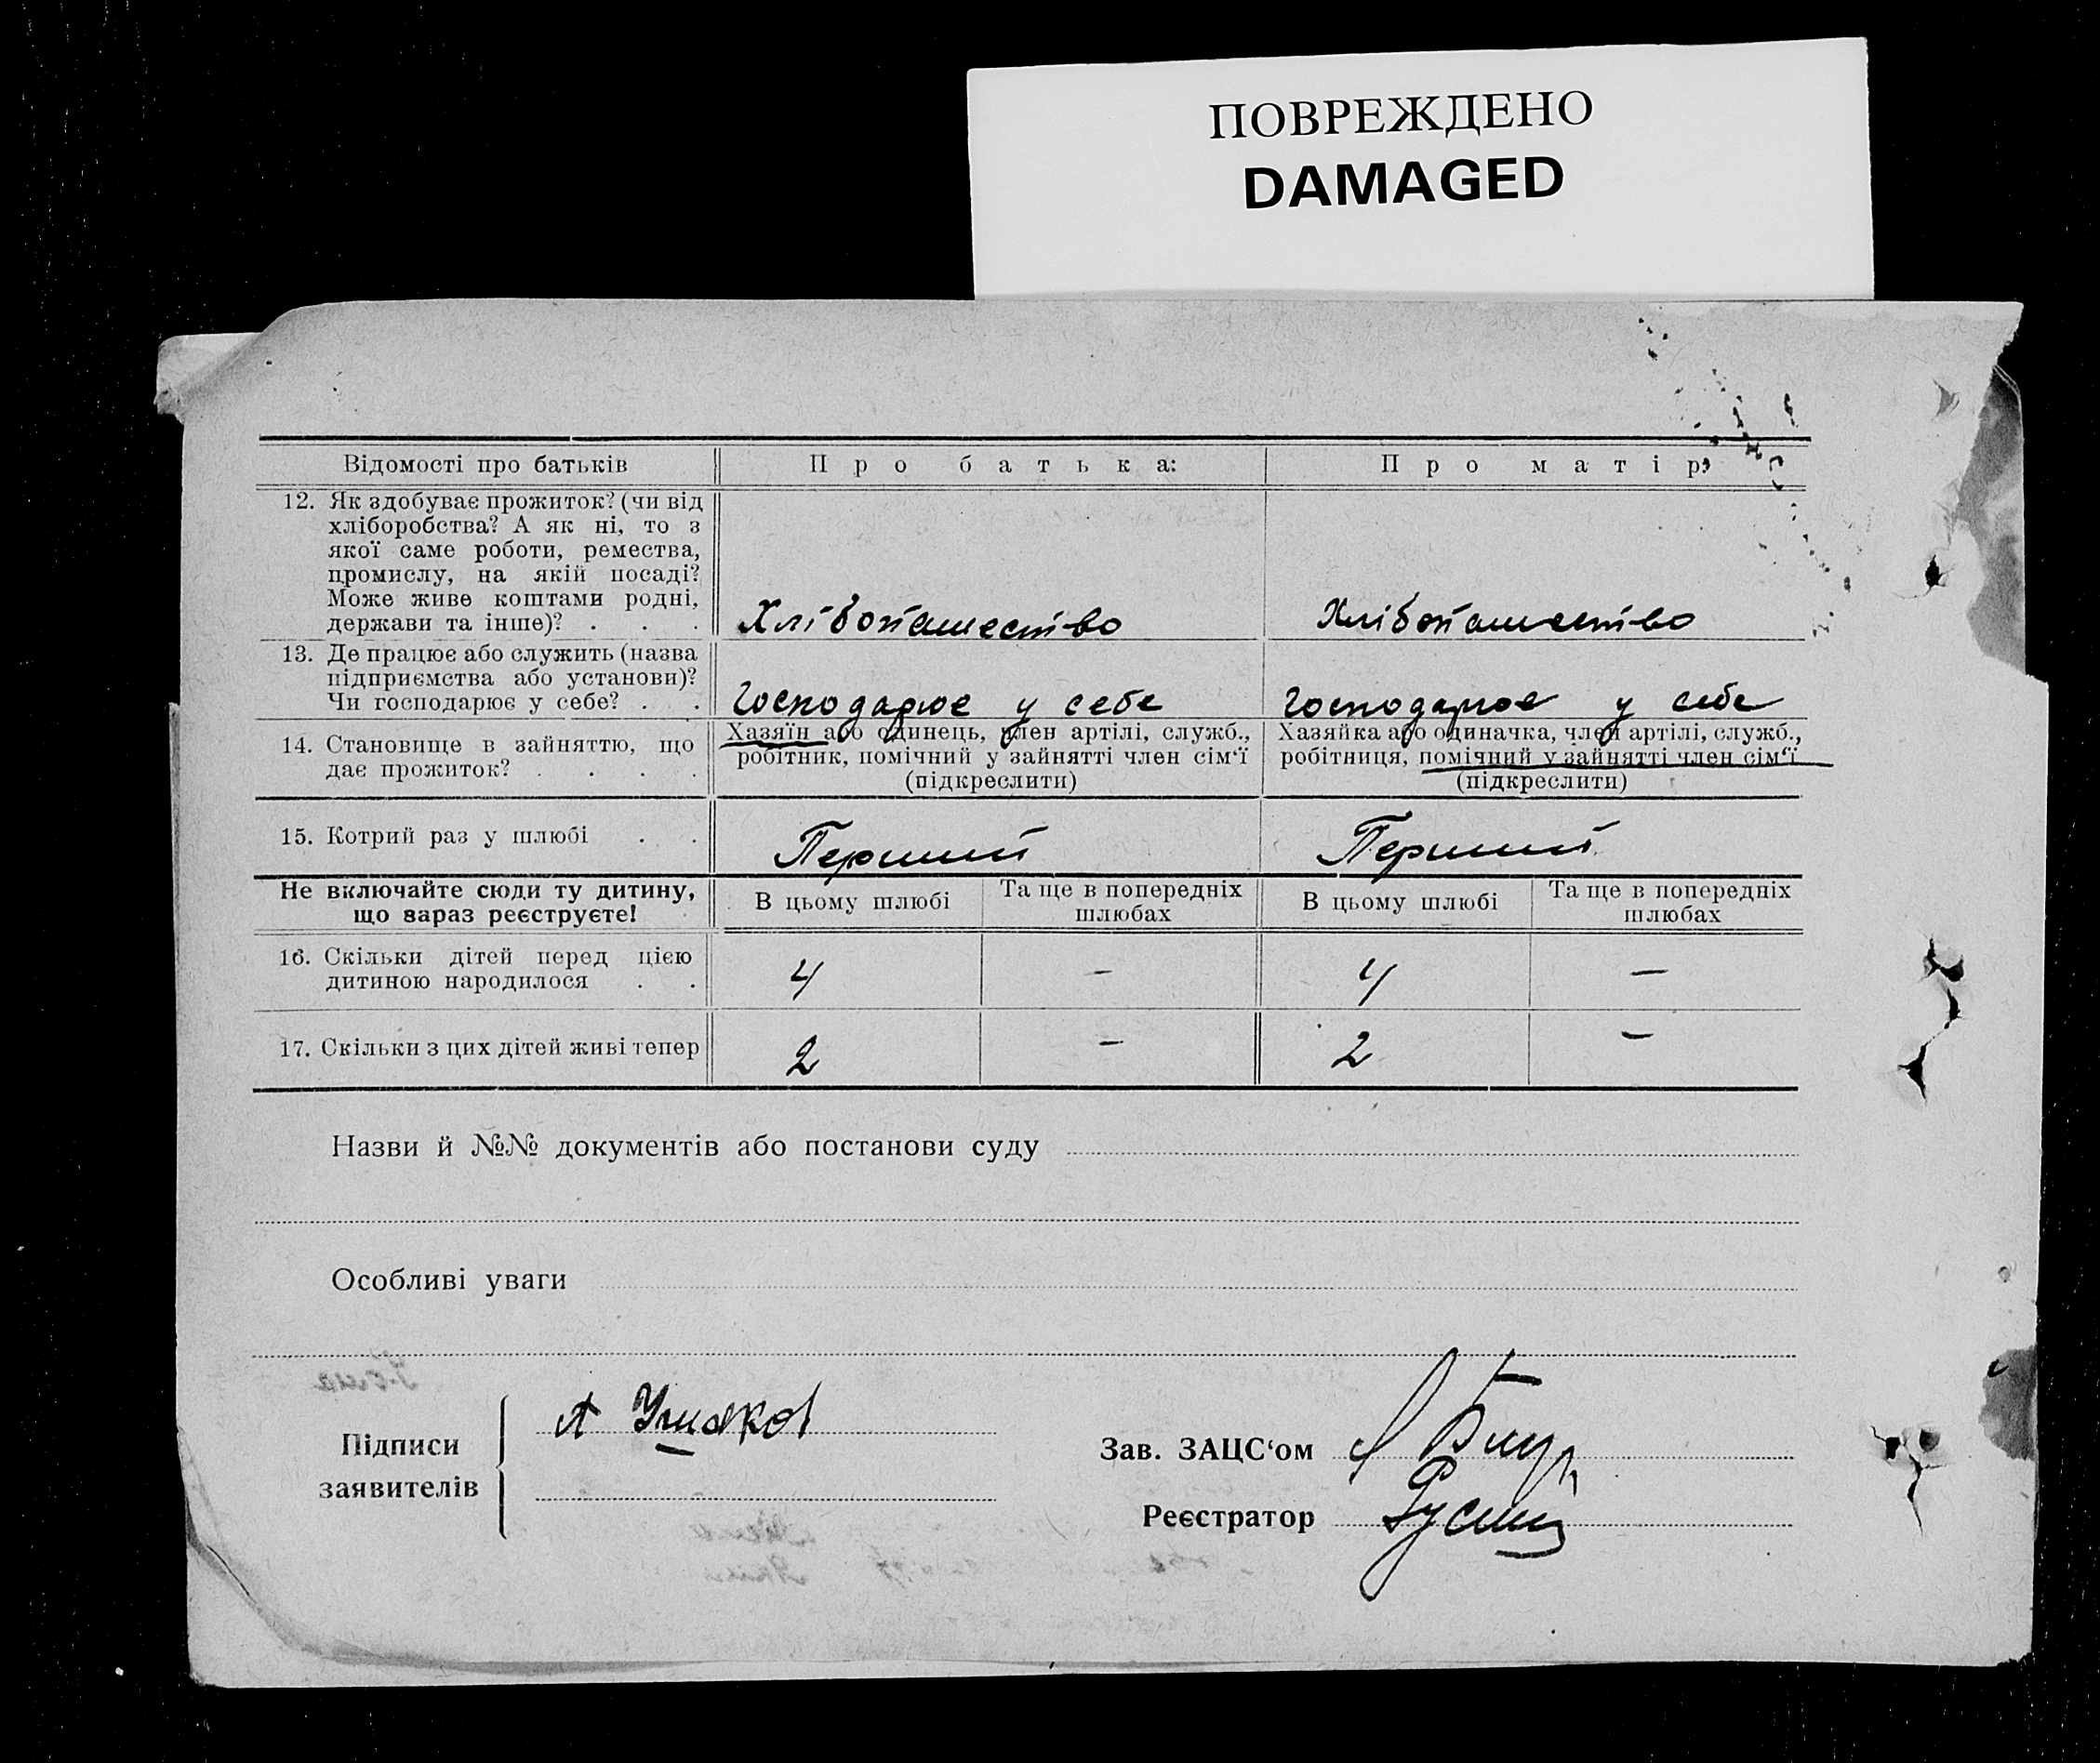 ПОВРЕЖДЕНО
DAMAGED
Відомості про батьків
Про батька:
Про матір:
12. Як здобуває прожиток? (чи від
хліборобства? А як ні, то з
якої саме роботи, ремества,
промислу, на якій посаді?
Може живе коштами родні,
держави та інше)? . . .
Хлібопашество
Хлібопашество
13. Де працює або служить (назва
підприємства або установи)?
Чи господарює у себе? . .
Господарює у себе
Господарює у себе
14. Становище в зайняттю, що
дає прожиток? . . . .
Хазяїн або одинець, член артілі, служб.,
робітник, помічний у зайнятті член сім‘ї
(підкреслити)
Хазяйка або одиначка, член артілі, служб.,
робітниця, помічний у зайнятті член сім‘ї
(підкреслити)
15. Котрий раз у шлюбі . .
Перший
Перший
Не включайте сюди ту дитину,
що зараз реєструєте!
В цьому шлюбі
Та ще в попередніх
шлюбах
В цьому шлюбі
Та ще в попередніх
шлюбах
16. Скільки дітей перед цією
дитиною народилося . .
4 — 4 —
17. Скільки з цих дітей живі тепер
2 — 2 —
Назви й №№ документів або постанови суду
Особливі уваги
Підписи
заявителів
А Ушаков
Зав. ЗАЦС‘ом
Реєстратор